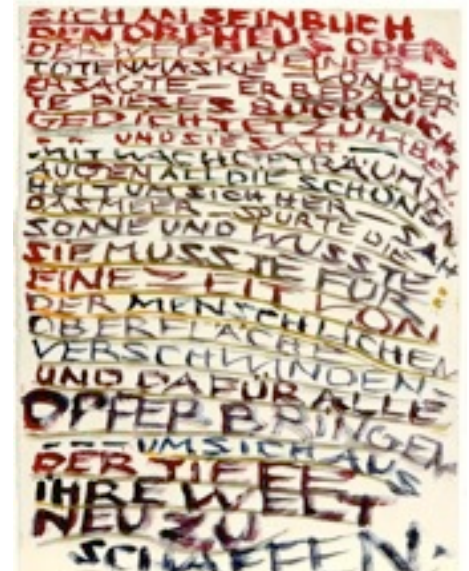 SICH AN SEIN BUCH
DEN ORPHEUS ODER
DER WEG ZU EINER
TOTENMASKE — VON DEM
ER SAGTE — ER BEDAUER
TE DIESES BUCH NICHT
GEDICHTET ZU HABEN.
-- UND SIE SAH —
MIT WACHGETRÄUMTEN
AUGEN ALL DIE SCHÖN
HEIT UM SICH HER — SAH
DAS MEER — SPÜRTE DIE
SONNE UND WUSSTE
SIE MUSSTE FÜR
EINE ZEIT VON
DER MENSCHLICHEN
OBERFLÄCHE
VERSCHWINDEN-
UND DAFÜR ALLE
OPFER BRINGEN
--- UM SICH AUS
DER TIEFE
IHRE WELT
NEU ZU
SCHAFFEN.